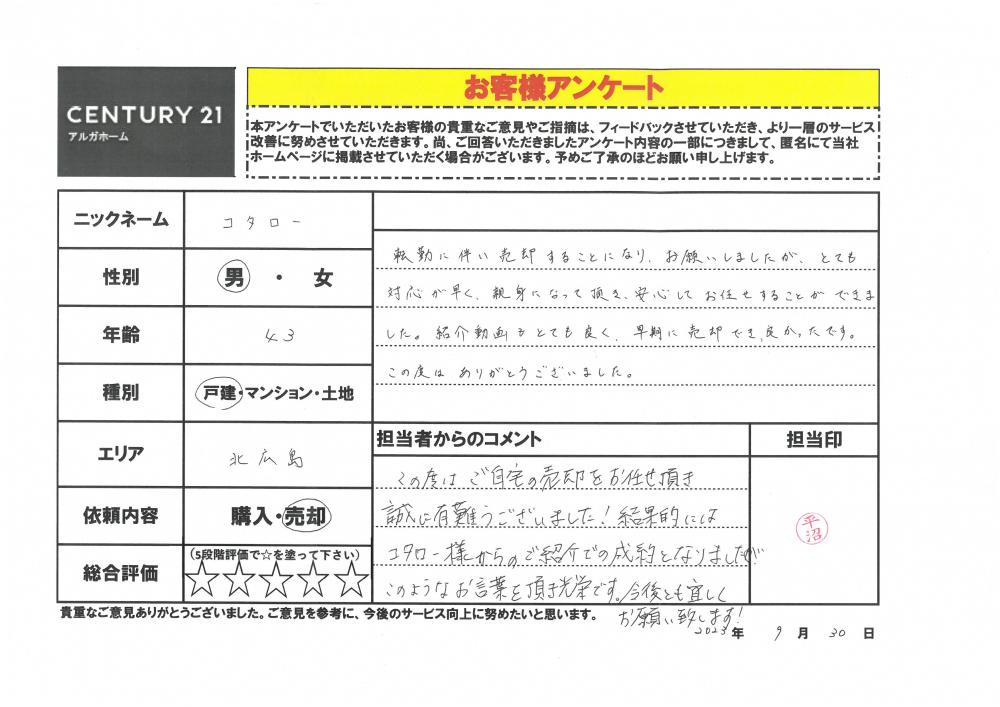 CENTURY 21
アルガホーム
お客様アンケート
本アンケートでいただいたお客様の貴重なご意見やご指摘は、フィードバックさせていただき、より一層のサービス
改善に努めさせていただきます。尚、ご回答いただきましたアンケート内容の一部につきまして、匿名にて当社
ホームページに掲載させていただく場合がございます。予めご了承のほどお願い申し上げます。
ニックネーム
コタロー
性別
男 ・ 女
年齢
43
種別
戸建・マンション・土地
エリア
北広島
依頼内容
購入・売却
総合評価
(5段階評価で☆を塗って下さい)
☆☆☆☆☆
転勤に伴い売却することになり、お願いしましたが、とても
対応が早く、親身になって頂き、安心してお任せすることができま
した。紹介動画もとても良く、早期に売却でき、良かったです。
この度はありがとうございました。
担当者からのコメント
担当印
この度はご自宅の売却をお任せ頂き
誠に有難うございました!結果的には
コタロー様からのご紹介での成約となりましたが
このようなお言葉を頂き光栄です。今後とも宜しく
お願い致します!
平沼
貴重なご意見ありがとうございました。ご意見を参考に、今後のサービス向上に努めたいと思います。
2023年 9月 30日